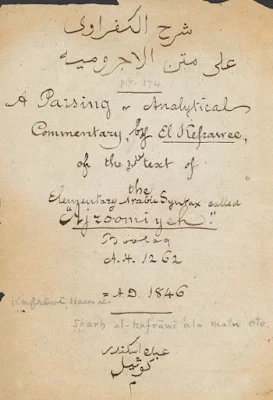 شرح الكفراوى
على متن الاجروميه
pp. 174
A Parsing or Analytical
Commentary, by El Kefrawee,
of the text of
the
Elementary Arabic Syntax called
"Ajroomiyeh."
Boolaq
A.H. 1262
= A.D. 1846
Kafrāwī Hasan al-
Sharh al-Kafrāwī 'ala matn etc.